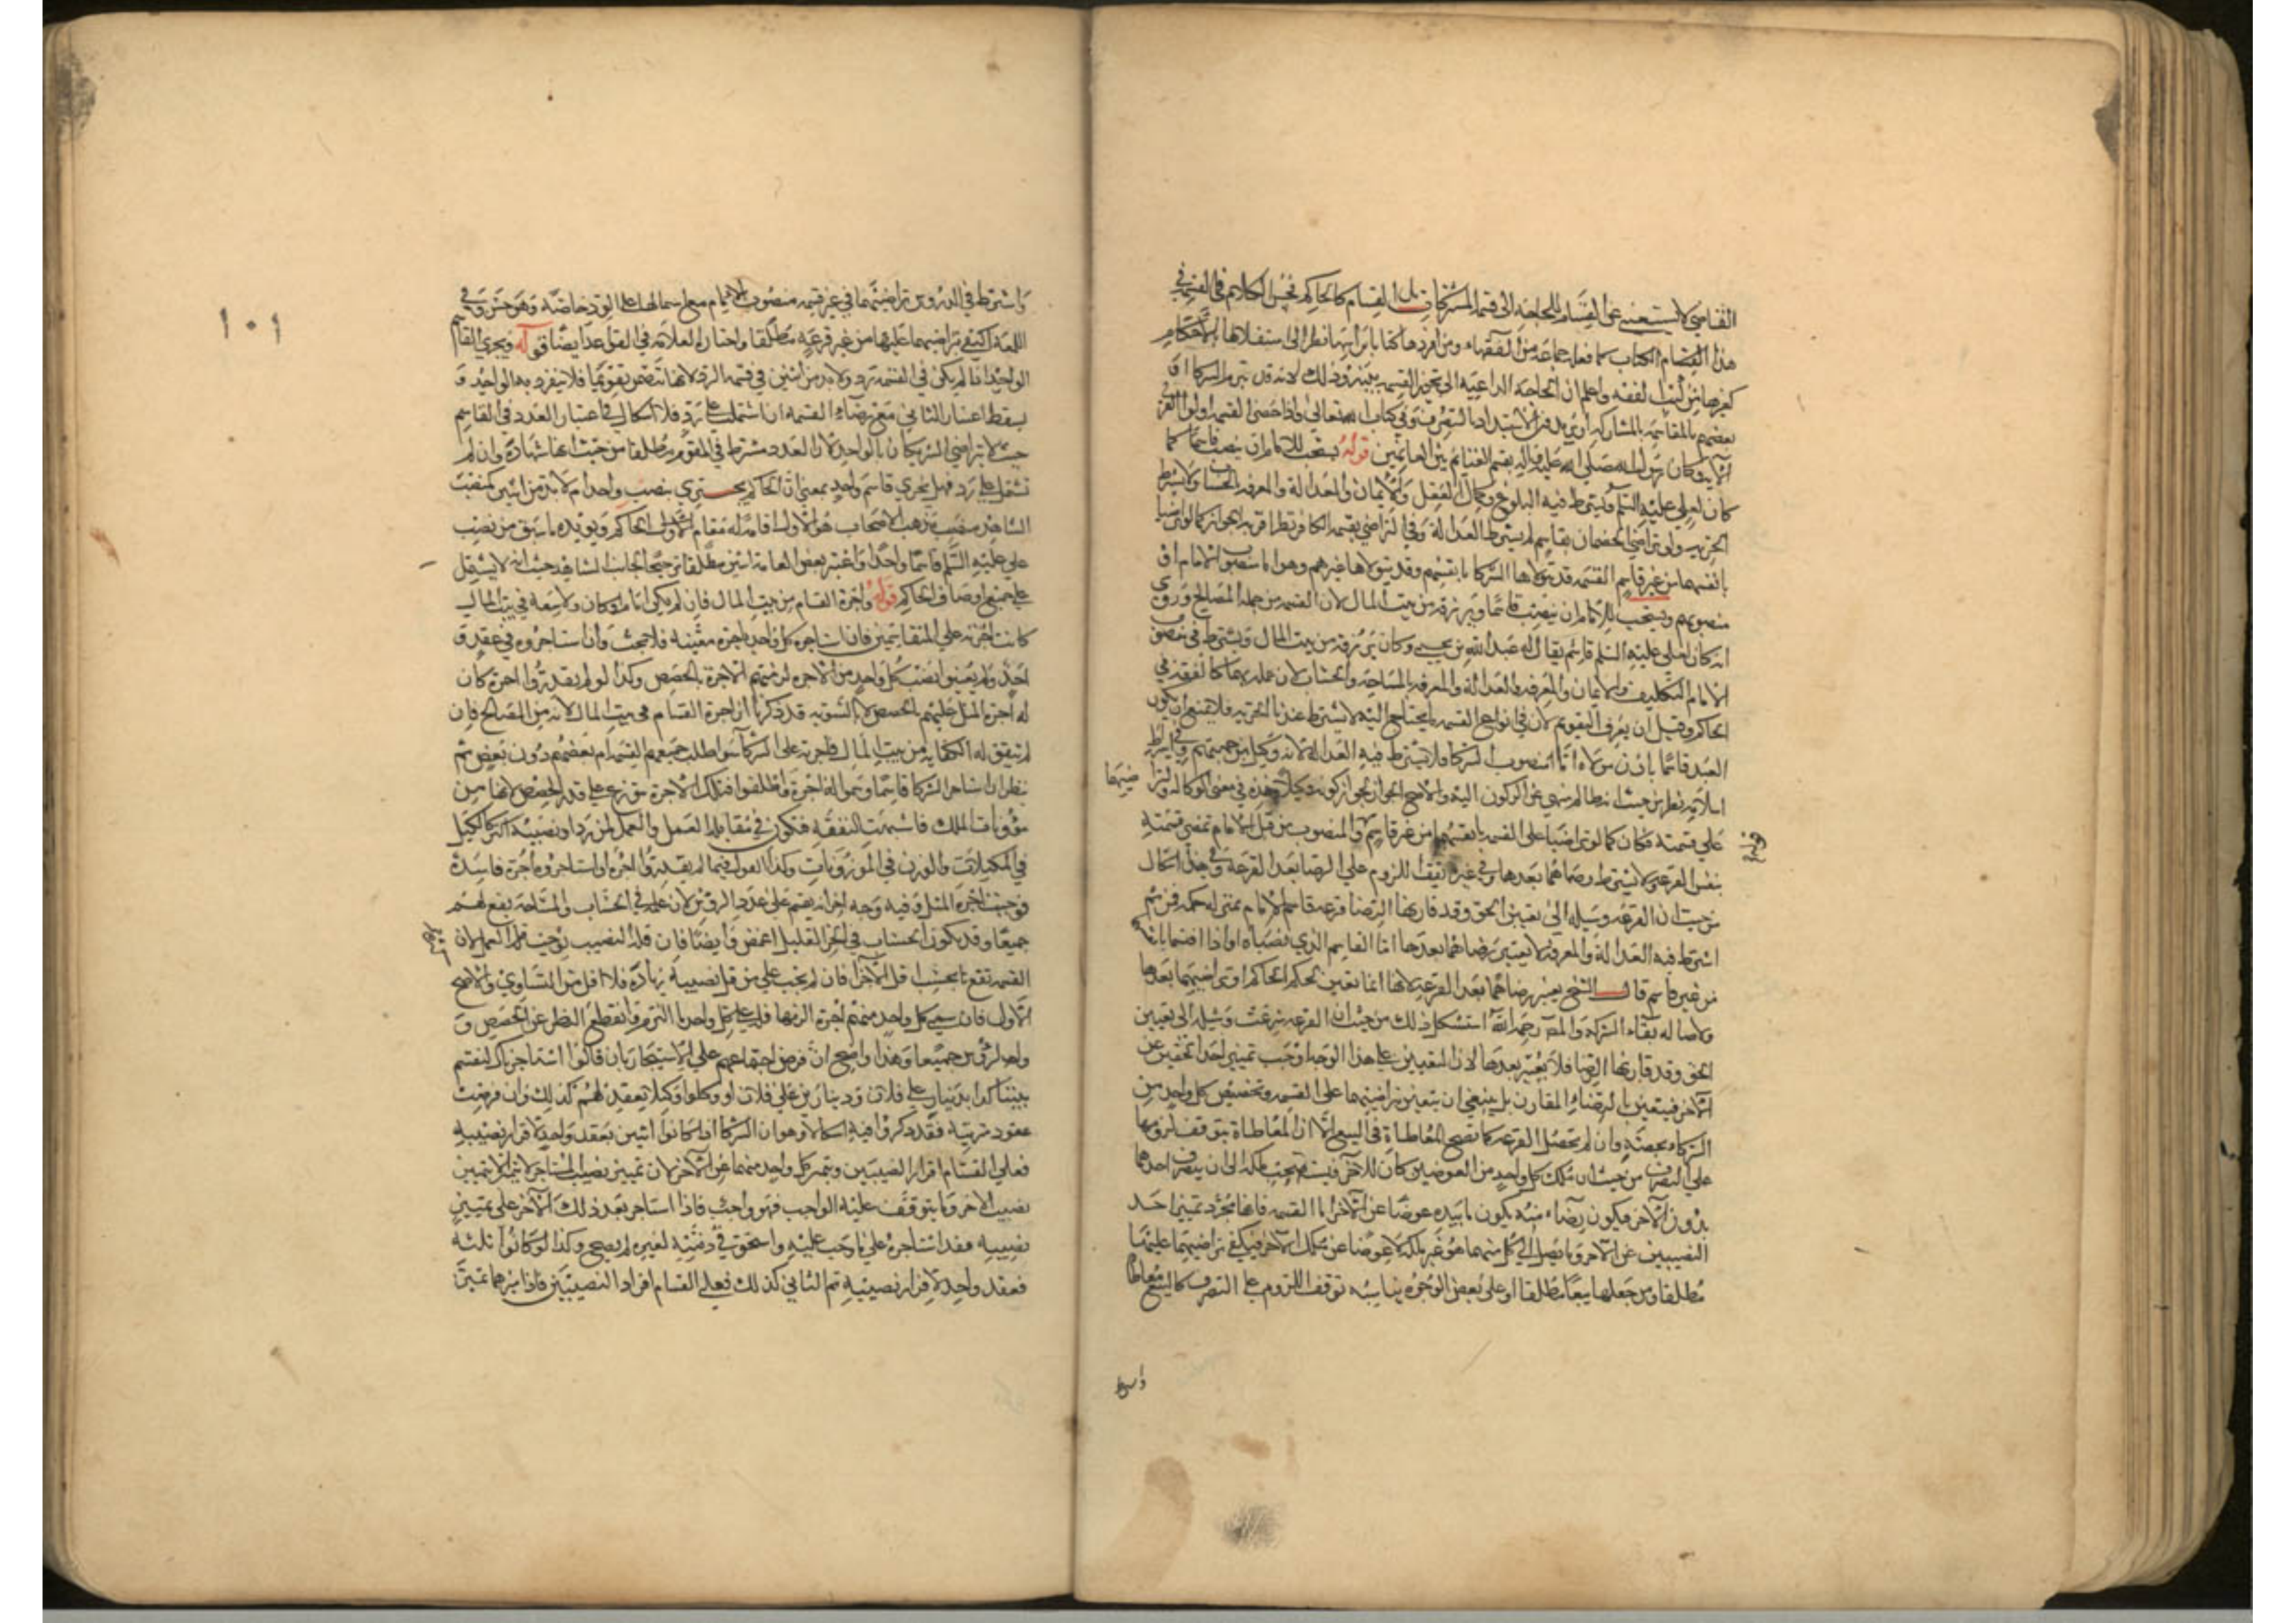 القاضي لا يستغني عن القسام للحاجة الى قسمة المشتركات بل القسام كالحاكم فحسن الكلام في القسمة في
هذا المقام الكتاب كما فعله جماعة من الفقهاء ومن افردها كتابا برأسها نظر الى استقلالها بالاحكام
كغيرها من كتب الفقه واعلم ان الحاجة الداعية الى تجويز القسمة بينة وذلك لانه قد يتبرم الشركاء او
بعضهم بالمقاسمة بالمشاركة او يريدون الاستبداد بالتصرف وفي كتاب الله تعالى واذا حضر القسمة اولوا القربى
الآية وكان رسول الله صلى الله عليه وآله يقسم الغنائم بين الغانمين قوله يستحب للامام ان ينصب قاسما كما
كان لعلي عليه السلام ويشترط فيه البلوغ وكمال العقل والايمان والعدالة والمعرفة بالحساب ولا يشترط
الحرية ولو تراضى الخصمان بقاسم لم يشترط العدالة وفي التراضي بقسمة الكافر نظر اقربه الجواز كما لو تراضيا
بانفسهما من غير قاسم القسمة قد يتولاها الشركاء بانفسهم وقد يتولاها غيرهم وهو اما منصوب الامام او
منصوبهم ويستحب للامام ان ينصب قاسما ويرزقه من بيت المال لان القسمة من جملة المصالح وروي
انه كان لعلي عليه السلم قاسم يقال له عبد الله بن يحيى وكان يرزقه من بيت المال ويشترط في منصوب
الامام التكليف والايمان والمعرفة والعدالة والمعرفة بالمساحة والحساب لان عمله بهما كالفقه في
الحاكم وقيل ان يعرف التقويم لان في انواع القسمة ما يحتاج اليه ولا يشترط عندنا الحرية فلا يمنع ان يكون
العبد قاسما باذن مولاه اما المنصوب الشركاء فلا يشترط فيه العدالة لانه وكيل من جهتهم وفي اشتراط
اسلامه نظر من حيث انه ظالم منهي عن الركون اليه والاصح الجواز لجواز كونه وكيلا وهذه في معنى الوكالة ولتراضيهما
على قسمته فكان كما لو تراضيا على القسمة بانفسهما من غير قاسم والمنصوب من قبل الامام تمضي قسمته
بنفس القرعة ولا يشترط رضاهما بعدها وفي غيره يقف اللزوم على الرضا بعد القرعة وفي هذا اشكال
من حيث ان القرعة وسيلة الى تعيين الحق وقد قارنها الرضا قرعة قاسم الامام بمنزلة حكمه فمن ثم
اشترط فيه العدالة والمعرفة ولا يعتبر رضاهما بعدها اما القاسم الذي نصباه او اذا اقتسما بانفسهما
من غير قاسم قال الشيخ يعتبر رضاهما بعد القرعة لانها انما تعين بحكم الحاكم او تراضيهما بعدها
ولاصالة بقاء الشركة والمصنف رحمه الله استشكل ذلك من حيث ان القرعة شرعت وسيلة الى تعيين
الحق وقد قارنها الرضا فلا يعتبر بعدها لان التعيين على هذا الوجه اوجب تمييز احد الحقين عن
الآخر فيتعين بالرضاء المقارن بل ينبغي ان يتعين بتراضيهما على القسمة وتخصيص كل واحد من
الشركاء بحصته وان لم تحصل القرعة كما تصح المعاطاة في البيع الا ان المعاطاة يتوقف لزومها
على التصرف من حيث ان ملك كل واحد من العوضين كان للآخر فيستصحب ملكه الى ان يتصرف احدهما
بدون الآخر فيكون رضاء منه بكون ما بيده عوضا عن الآخر اما القسمة فانها مجرد تمييز احد
النصيبين عن الآخر وما يصل الى كل منهما هو عين ملكه لا عوضا عن ملك الآخر فيكفي تراضيهما عليهما
مطلقا ومن جعلها بيعا مطلقا او على بعض الوجوه يناسبه توقف اللزوم على التصرف كالبيع معاطاة
واشترط
١٠١
واشترط في الدروس تراضيهما في غير قسمة منصوب الامام مع اشتمالها على الرد خاصة وهو حسن وفي
اللمعة اكتفى بتراضيهما عليها من غير قرعة مطلقا واختاره العلامة في القواعد ايضا قوله ويجزي القاسم
الواحد اذا لم يكن في القسمة رد ولا بد من اثنين في قسمة الرد لانها تتضمن تقويما فلا ينفرد به الواحد و
يسقط اعتبار الثاني مع رضاء القسمة ان اشتملت على رد فلا اشكال في اعتبار العدد في القاسم
حيث لا يتراضى الشريكان بالواحد لان العدد مشترط في المقوم مطلقا من حيث انها شهادة وان لم
تشتمل على رد فهل يجزي قاسم واحد بمعنى ان الحاكم يجتزي بنصب واحد ام لا بد من اثنين كمنصب
الشاهدين مذهب الاصحاب هو الاول اقامة له مقام الحاكم ويؤيده ما سبق من نصب
علي عليه السلم قاسما واحدا واعتبر بعض العامة اثنين مطلقا ترجيحا لجانب الشاهد حيث انه لا يستقل
على جميع اوصاف الحاكم قوله واجرة القسام من بيت المال فان لم يكن امام او كان ولا سعة في بيت المال
كانت اجرته على المتقاسمين فان استاجره كل واحد باجرة معينة فلا بحث وان استاجروه في عقد و
احد ولم يعينوا نصيب كل واحد من الاجرة لزمتهم الاجرة بالحصص وكذا لو لم يقدروا اجرة كان
له اجرة المثل عليهم بالحصص لا بالسوية قد ذكرنا ان اجرة القسام في بيت المال لانه من المصالح فان
لم يتفق له الكفاية من بيت المال فاجرته على الشركاء سواء طلب جميعهم القسمة ام بعضهم دون بعض ثم
ينظر ان استاجر الشركاء قاسما وسموا له اجرة واطلقوا فتلك الاجرة توزع على قدر الحصص لانها من
مؤونات الملك فاشبهت النفقة فتكون في مقابلة العمل والعمل لمن زاد نصيبه اكثر كالكيل
في المكيلات والوزن في الموزونات وكذا القول فيما لم يقدروا اجرة او استاجروه باجرة فاسدة
فوجبت اجرة المثل وفيه وجه اخر انه يقسم على عدد الرؤس لان عمله في الحساب والمساحة يقع لهم
جميعا وقد يكون الحساب في الجزء القليل اغمض وايضا فان قلة النصيب توجب كثرة العمل لان
القسمة تقع بحسب اقل الاجزاء فان لم يجب على من قل نصيبه زيادة فلا اقل من التساوي والاصح
الاول فان سمى كل واحد منهم اجرة الزمها فله على كل واحد ما التزم وانقطع النظر عن الحصص و
الرؤس جميعا وهذا واضح ان فرض اجتماعهم على الاستيجار بان قالوا استاجرناك لتقسم
بيننا كذا بدينار على فلان ودينارين على فلان او وكلوا وكيلا يعقد لهم كذلك وان فرضت
عقود مترتبة فقد ذكروا فيه اشكالا وهو ان الشركاء اذا كانوا اثنين فعقد واحد لافراز نصيبه
فعلى القسام افراز النصيبين وتمييز كل واحد منهما عن الآخر لان تمييز نصيب المستاجر لا يتم الا بتمييز
نصيب الاخر وما يتوقف عليه الواجب فهو واجب فاذا استاجر بعد ذلك الآخر على تمييز
نصيبه فقد استاجره على ما وجب عليه واستحق في ذمته لغيره لم يصح وكذا لو كانوا ثلثه
فعقد واحد لافراز نصيبه ثم الثاني كذلك فعلى القسام افراد النصيبين فاذا ميزهما تميز